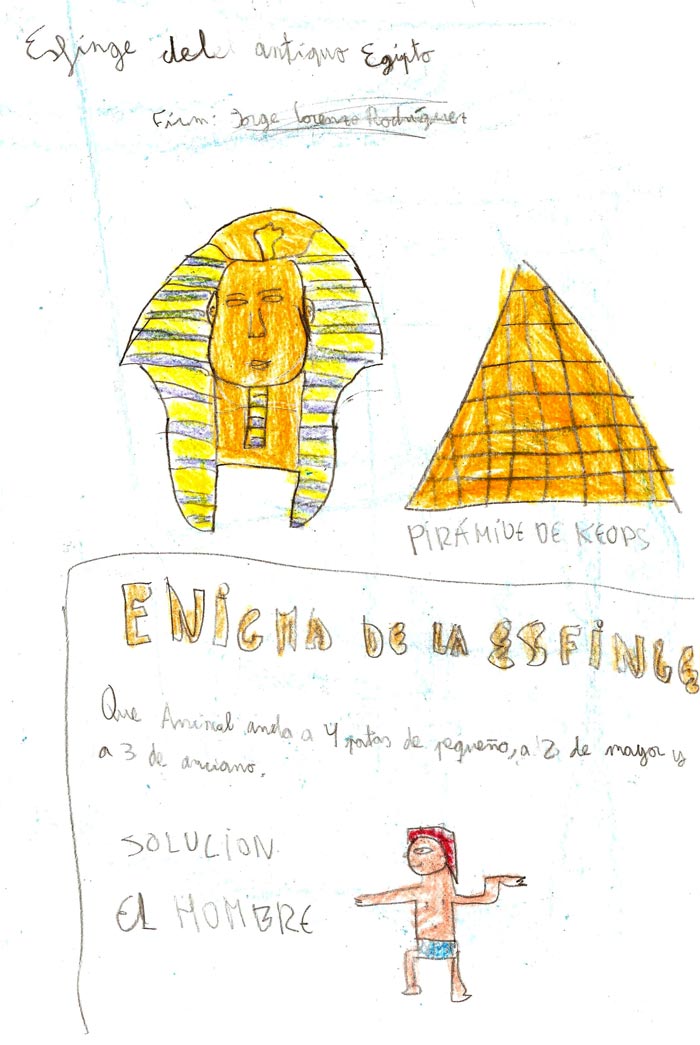 Esfinge del antiguo Egipto
Firm: Jorge Lorenzo Rodríguez
PIRÁMIDE DE KEOPS
ENiGMA DE LA ESFiNGE
Que Animal anda a 4 patas de pequeño, a 2 de mayor y
a 3 de anciano.
SOLUCION
El HOMBRE